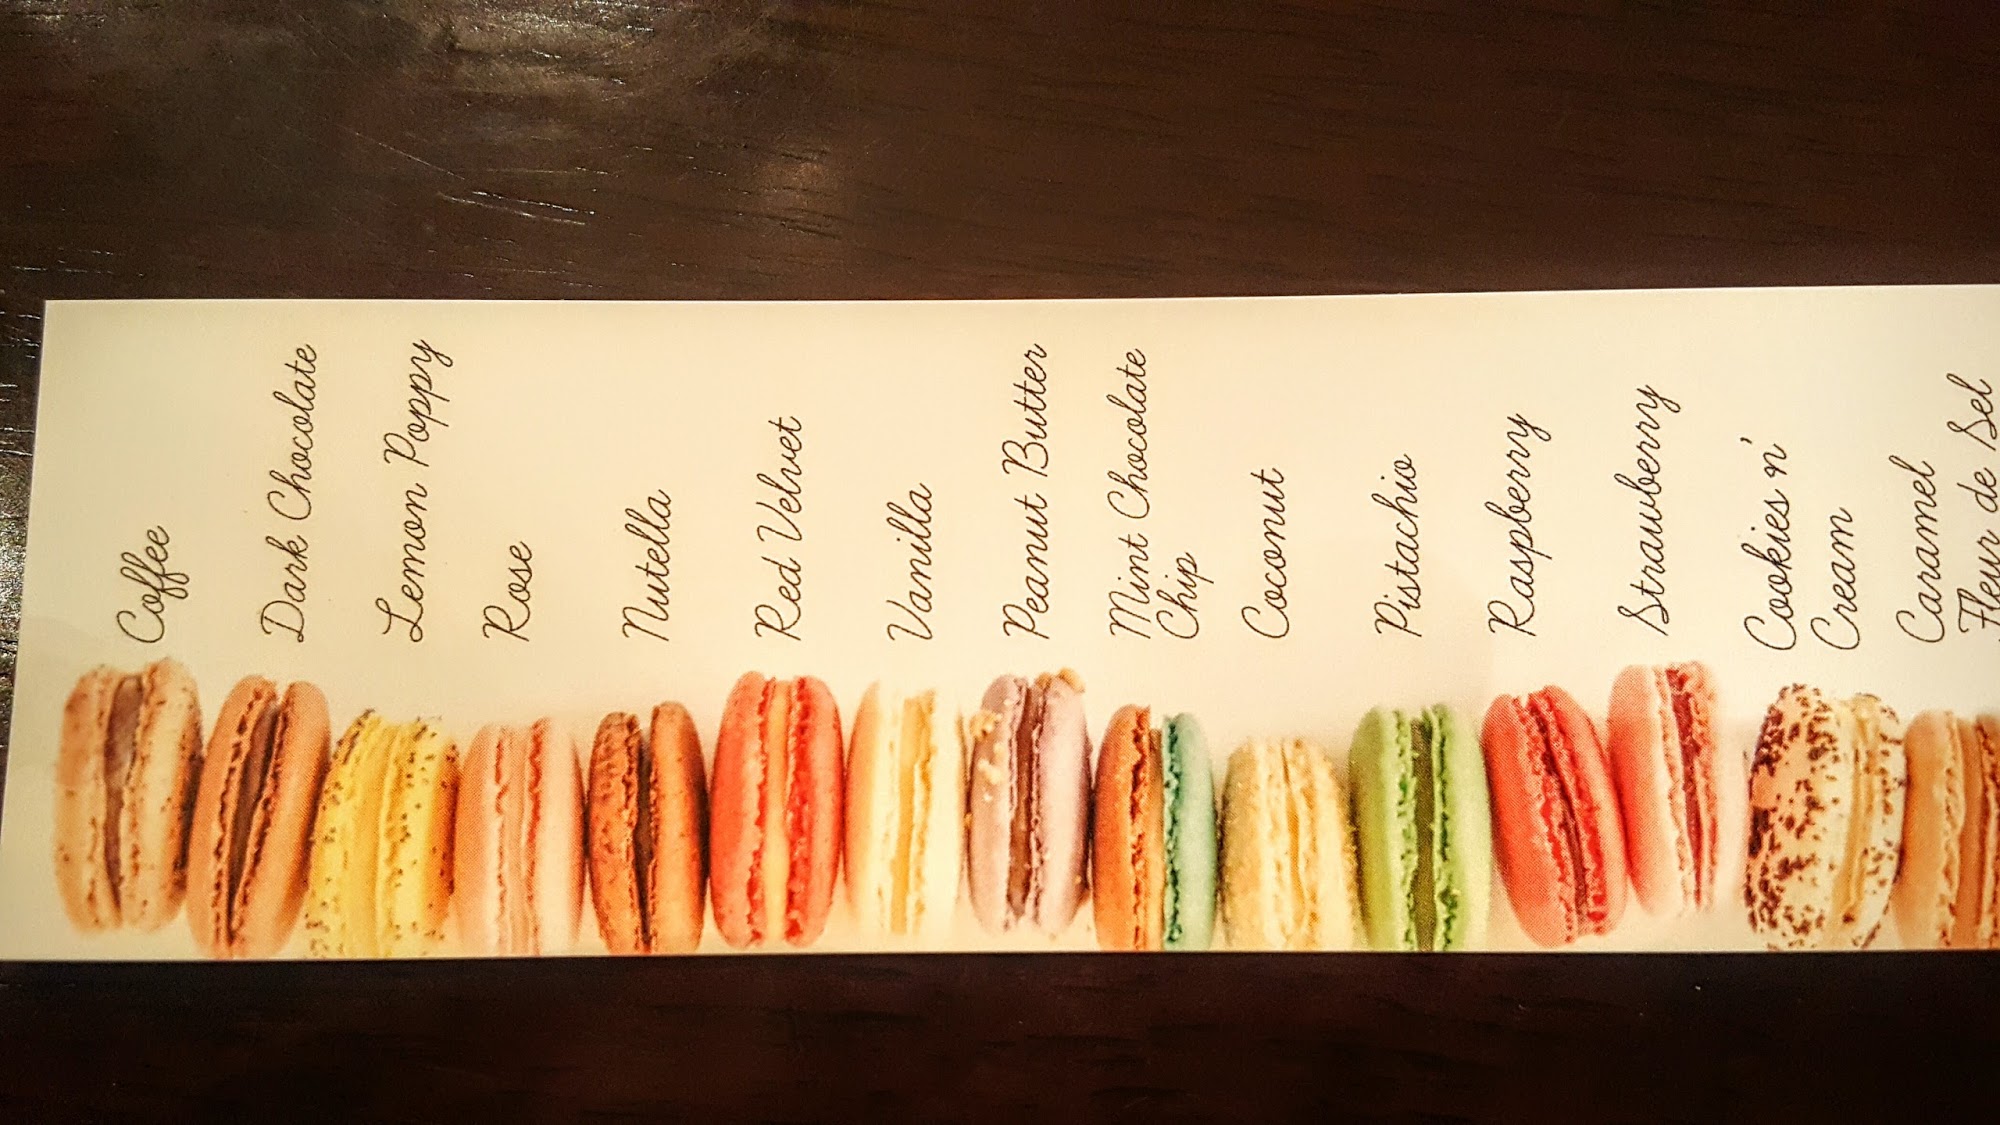 Coffee
Dark Chocolate
Lemon Poppy
Rose
Nutella
Red Velvet
Vanilla
Peanut Butter
Mint Chocolate
Chip
Coconut
Pistachio
Raspberry
Strawberry
Cookies n'
Cream
Caramel
Fleur de Sel